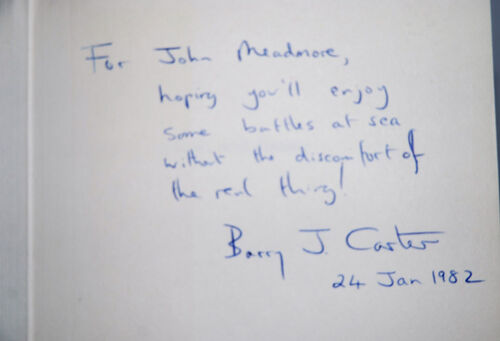 For John Meadmore,
hoping you'll enjoy
some battles at sea
without the discomfort of
the real thing!
Barry J. Carter
24 Jan 1982